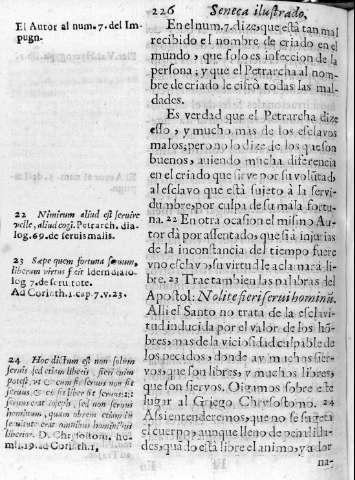 226 Seneca ilustrado,
El Autor al num. 7. del Im-
pugn.
En el num. 7. dize, que està tan mal
recibido el nombre de criado en el
mundo, que solo es infeccion de la
persona; y que el Petrarcha al nom-
bre de criado le cifrò todas las mal-
dades.
Es verdad que el Petrarcha dize
esso, y mucho mas de los esclavos
malos; pero no lo dize de los que son
buenos, auiendo mucha diferencia
en el criado que sirve por su volũtad,
al esclavo que està sujeto à la servi-
dumbre, por culpa de su mala fortu-
na. 22 En otra ocasion el mismo Au-
tor dà por assentado, que si à injurias
de la inconstancia del tiempo fuere
vno esclavo, su virtud le aclamarà li-
bre. 23 Trae tambien las palabras del
Apostol: Nolite fieri serui hominũ.
Alli el Santo no trata de la esclavi-
tud inducida por el valor de los hõ-
bres, mas de la viciosidad culpable de
los pecados, donde ay muchos sier-
vos, que son libres, y muchos libres,
que son siervos. Oigamos sobre este
lugar al Griego Chrysostomo. 24
Assi entenderemos, que no se sugeta
el cuerpo, aunque lleno de penalida-
des, quãdo està libre el animo, y ador
na-
22 Nimirum aliud est seruire
velle, aliud cogi. Petrarch. dia-
log. 69. de seruis malis.
23 Sæpe quem fortuna seruum,
liberum virtus fecit Idem dialo-
log 7. de seru tute.
Ad Corinth. 1. cap. 7. v. 23.
24 Hoc dictum est non solum
seruis sed etiam liberis, fieri enim
potest, vt & cum sit seruus non sit
seruus, & cũ sit liber sit seruus:
seruus erat Ioseph, sed non seruus
hominum, quam obrem etiam in
seruitute erat omnibus hominibus
liberior. D. Chrysostom, ho-
mil. 19. ad Corinth. 1.